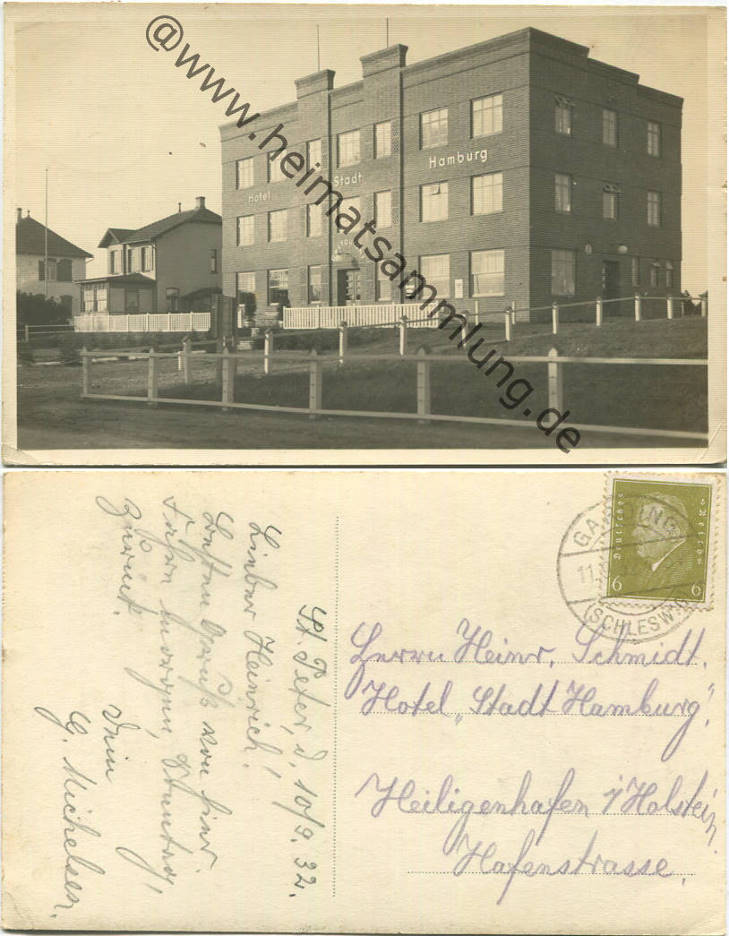 @www.heimatsammlung.de
Hotel Stadt Hamburg
GARDING
11.
(SCHLESW.)
Deutsches Reich
6 6
St. Peter, d. 10/9. 32.
Lieber Heinrich!
Letzten Gruß von hier.
Fahre morgen, Sonntag,
zurück.
Dein
G. Michelsen.
Herrn Heinr. Schmidt.
Hotel „Stadt Hamburg",
Heiligenhafen i/Holstein.
Hafenstrasse.